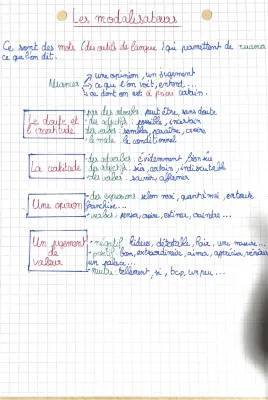 Les modalisateurs
Ce sont des mots (des outils de langue) qui permettent de nuancer
ce que l'on dit.
Nuancer
une opinion, un jugement
ce que l'on voit, entend ...
ou dont on est à peine certain.
Le doute et
l'incertitude
des adverbes peut être, sans doute
des adjectifs : possible, incertain
des verbes : sembler, paraître, croire
le mode : le conditionnel
La certitude
des adverbes : évidemment, bien sûr
des adjectifs : sûr, certain, indiscutable
des verbes : savoir, affirmer
Une opinion
des expressions selon moi, quant à moi, en toute
franchise...
verbes : penser, croire, estimer, craindre ...
Un jugement
de
valeur
négatif hideux, détestable, haïr, une masure...
positif bon, extraordinaire, aimer, apprécier,
un palace...
tellement, si, bcp, un peu ...